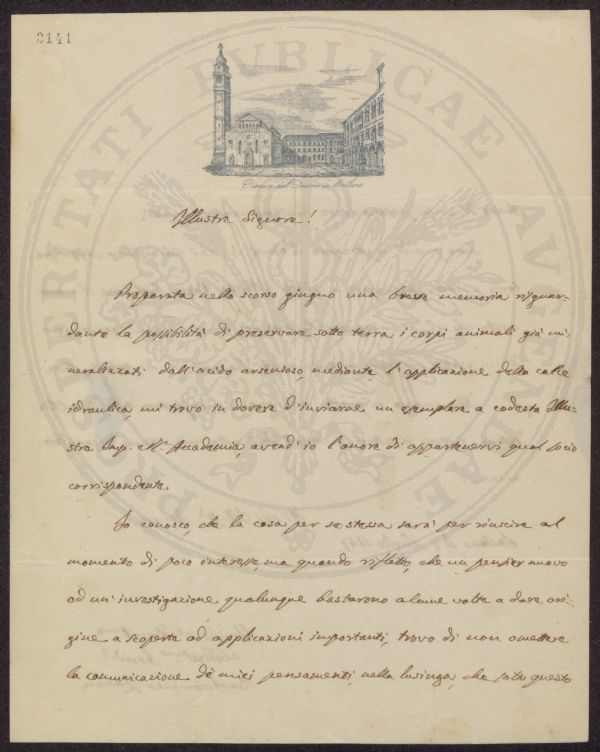 3141
PROSPERITATI PVBLICAE AVGENDAE
Piazza del Duomo in Belluno
Illustre Signore!
Preparata nello scorso giugno una breve memoria riguar-
dante la possibilità di preservare sotto terra i corpi animali già mi-
neralizzati dall'acido arsenioso, mediante l'applicazione della calce
idraulica, mi trovo in dovere d'inviarne un esemplare a codesta Illu-
stre Imp. e R.e Accademia, avend'io l'onore di appartenervi qual socio
corrispondente.
Io conosco, che la cosa per se stessa sarà per riuscire al
momento di poco interesse, ma quando rifletto, che un pensier nuovo
od un'investigazione qualunque bastarono alcune volte a dare ori-
gine a scoperte od applicazioni importanti, trovo di non omettere
la comunicazione de' miei pensamenti, nella lusinga, che sotto questo